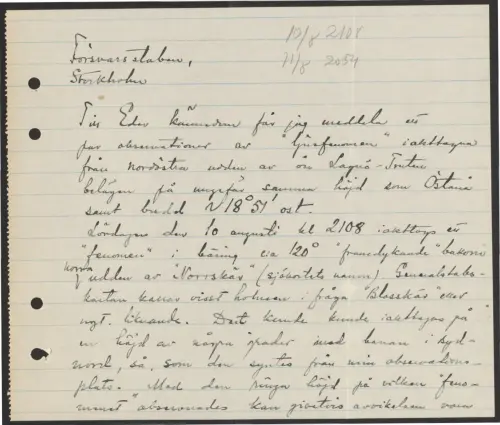 12/8 2108
11/8 2054
Försvarsstaben,
Stockholm
Till Eder kännedom får jag meddela ett
par observationer av "ljusfenomen" iakttagna
från nordöstra udden av ön Lagnö-Truten
belägen på ungefär samma höjd som Östanå
samt bredd N 18° 51' ost.
Lördagen den 10 augusti kl 2108 iakttogs ett
"fenomen" i bäring ca 120° "framdykande" bakom
norra udden av "Norrskär" (sjökortets namn) Generalstabs-
kartan
viset holmen i fråga "Blasskär" eller
ngt. liknande. Det kunde iakttagas på
en höjd av några grader med banan i syd-
nord, så, som den syntes från min observations-
plats. Med den ringa höjd på vilken "feno-
menet" observerades kan givetvis avvikelsen vara